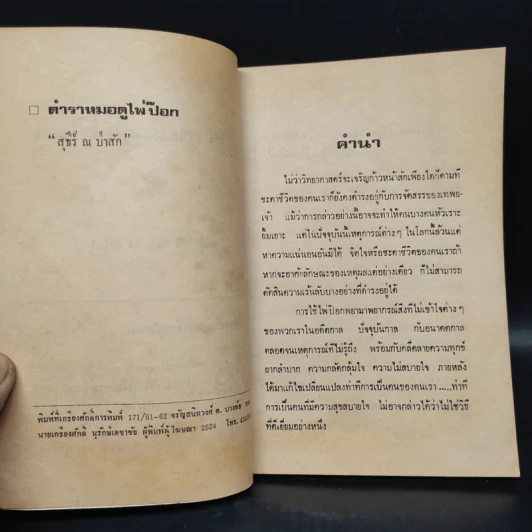 □ ตำราหมอดูไพ่ป๊อก
“สุธีร์ ณ ป่าสัก”
พิมพ์ที่เกรืองศักดิ์การพิมพ์ 171/61-62 จรัญสนิทวงศ์ ต. บางอ้อ
นายเกรืองศักดิ์ นุรักษ์เดชาชัย ผู้พิมพ์ผู้โฆษณา 2524 โทร.
คำนำ
ไม่ว่าวิทยาศาสตร์จะเจริญก้าวหน้าสักเพียงใดก็ตามที
ชะตาชีวิตของคนเราก็ยังคงดำรงอยู่กับการจัดสรรของเทพย-
เจ้า แม้ว่าการกล่าวอย่างนี้อาจจะทำให้คนบางคนหัวเราะ
ยิ้มเยาะ แต่ในปัจจุบันนี้เหตุการณ์ต่าง ๆ ในโลกนี้ล้วนแต่
หาความแน่นอนอันมิได้ จิตใจหรือชะตาชีวิตของคนเราถ้า
หากจะอาศัยลักษณะของเหตุผลแต่อย่างเดียว ก็ไม่สามารถ
ตัดสินความเร้นลับบางอย่างที่ดำรงอยู่ได้
การใช้ไพ่ป๊อกพยามาพยากรณ์สิ่งที่ไม่เข้าใจต่าง ๆ
ของพวกเราในอดีตกาล ปัจจุบันกาล กับอนาคตกาล
ตลอดจนเหตุการณ์ที่ไม่รู้ถึง พร้อมกับคลี่คลายความทุกข์
ยากลำบาก ความกลัดกลุ้มใจ ความไม่สบายใจ ภายหลัง
ได้มาแก้ไขเปลี่ยนแปลงท่าทีการเป็นคนของคนเรา ....ท่าที
การเป็นคนที่มีความสุขสบายใจ ไม่อาจกล่าวได้ว่าไม่ใช่วิธี
ที่ดีเยี่ยมอย่างหนึ่ง